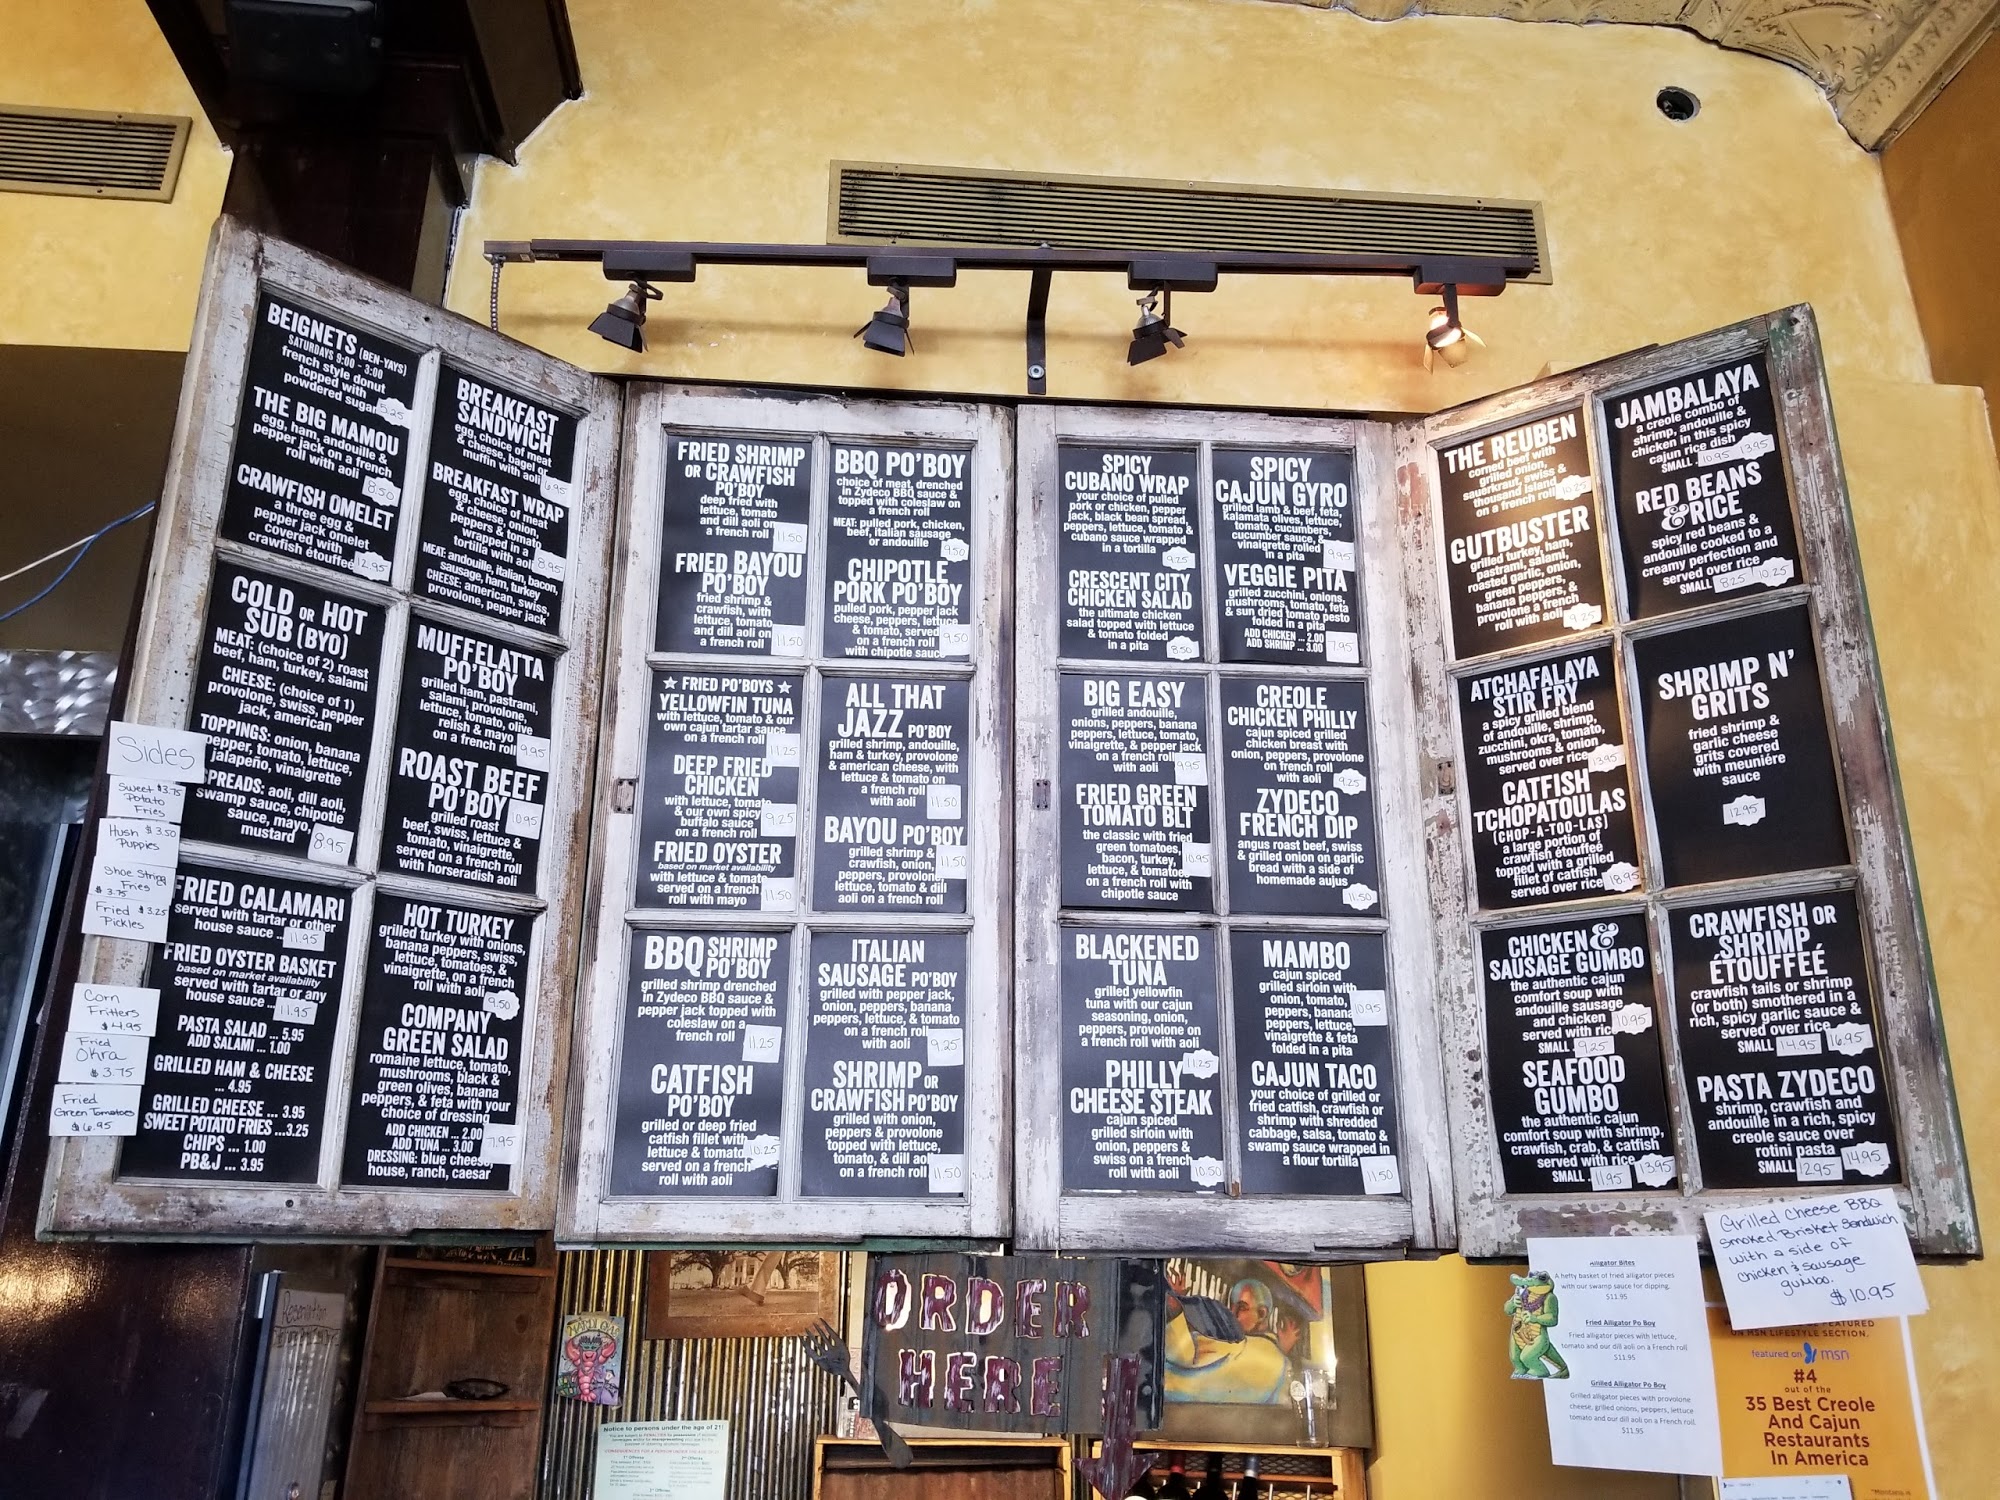 BEIGNETS (BEN-YAYS)
SATURDAYS 9:00 - 3:00
french style donut
topped with
powdered sugar 5.25
THE BIG MAMOU
egg, ham, andouille &
pepper jack on a french
roll with aoli 8.50
CRAWFISH OMELET
a three egg &
pepper jack omelet
covered with
crawfish étouffeé 12.95
BREAKFAST
SANDWICH
egg, choice of meat
& cheese, bagel or
muffin with aoli 6.95
BREAKFAST WRAP
egg, choice of meat
& cheese, onion,
peppers & tomato
wrapped in a
tortilla with aoli 8.95
MEAT: andouille, italian, bacon,
sausage, ham, turkey
CHEESE: american, swiss,
provolone, pepper jack
COLD OR HOT
SUB (BYO)
MEAT: (choice of 2) roast
beef, ham, turkey, salami
CHEESE: (choice of 1)
provolone, swiss, pepper
jack, american
TOPPINGS: onion, banana
pepper, tomato, lettuce,
jalapeño, vinaigrette
SPREADS: aoli, dill aoli,
swamp sauce, chipotle
sauce, mayo,
mustard 8.95
MUFFELATTA
PO'BOY
grilled ham, pastrami,
salami, provolone,
lettuce, tomato, olive
relish & mayo
on a french roll 9.95
ROAST BEEF
PO'BOY 10.95
grilled roast
beef, swiss, lettuce &
tomato, vinaigrette,
served on a french roll
with horseradish aoli
FRIED CALAMARI
served with tartar or other
house sauce .. 11.95
FRIED OYSTER BASKET
based on market availability
served with tartar or any
house sauce ... 11.95
PASTA SALAD ... 5.95
ADD SALAMI ... 1.00
GRILLED HAM & CHEESE
... 4.95
GRILLED CHEESE ... 3.95
SWEET POTATO FRIES ...3.25
CHIPS ... 1.00
PB&J ... 3.95
HOT TURKEY
grilled turkey with onions,
banana peppers, swiss,
lettuce, tomatoes, &
vinaigrette, on a french
roll with aoli 9.50
COMPANY
GREEN SALAD
romaine lettuce, tomato,
mushrooms, black &
green olives, banana
peppers, & feta with your
choice of dressing
ADD CHICKEN ... 2.00
ADD TUNA ... 3.00 7.95
DRESSING: blue cheese,
house, ranch, caesar
Sides
Sweet $3.75
Potato
Fries
Hush $3.50
Puppies
Shoe String
Fries
$3.75
Fried $3.25
Pickles
Corn
Fritters
$4.95
Fried
Okra
$3.75
Fried
Green Tomatoes
$6.95
FRIED SHRIMP
OR CRAWFISH
PO'BOY
deep fried with
lettuce, tomato
and dill aoli on
a french roll 11.50
FRIED BAYOU
PO'BOY
fried shrimp &
crawfish, with
lettuce, tomato
and dill aoli on
a french roll 11.50
BBQ PO'BOY
choice of meat, drenched
in Zydeco BBQ sauce &
topped with coleslaw on
a french roll
MEAT: pulled pork, chicken,
beef, italian sausage
or andouille 9.50
CHIPOTLE
PORK PO'BOY
pulled pork, pepper jack
cheese, peppers, lettuce
& tomato, served
on a french roll 9.50
with chipotle sauce
★ FRIED PO'BOYS ★
YELLOWFIN TUNA
with lettuce, tomato & our
own cajun tartar sauce
on a french roll 11.25
DEEP FRIED
CHICKEN
with lettuce, tomato
& our own spicy
buffalo sauce 9.25
on a french roll
FRIED OYSTER
based on market availability
with lettuce & tomato
served on a french
roll with mayo 11.50
ALL THAT
JAZZ PO'BOY
grilled shrimp, andouille,
ham & turkey, provolone
& american cheese, with
lettuce & tomato on
a french roll
with aoli 11.50
BAYOU PO'BOY
grilled shrimp &
crawfish, onion, 11.50
peppers, provolone
lettuce, tomato & dill
aoli on a french roll
BBQ SHRIMP
PO'BOY
grilled shrimp drenched
in Zydeco BBQ sauce &
pepper jack topped with
coleslaw on a
french roll 11.25
CATFISH
PO'BOY
grilled or deep fried
catfish fillet with
lettuce & tomato 10.25
served on a french
roll with aoli
ITALIAN
SAUSAGE PO'BOY
grilled with pepper jack,
onion, peppers, banana
peppers, lettuce, & tomato
on a french roll
with aoli 9.25
SHRIMP OR
CRAWFISH PO'BOY
grilled with onion,
peppers & provolone
topped with lettuce,
tomato, & dill aoli
on a french roll 11.50
SPICY
CUBANO WRAP
your choice of pulled
pork or chicken, pepper
jack, black bean spread,
peppers, lettuce, tomato &
cubano sauce wrapped
in a tortilla 9.25
CRESCENT CITY
CHICKEN SALAD
the ultimate chicken
salad topped with lettuce
& tomato folded
in a pita 8.50
SPICY
CAJUN GYRO
grilled lamb & beef, feta,
kalamata olives, lettuce,
tomato, cucumbers,
cucumber sauce, &
vinaigrette rolled
in a pita 9.95
VEGGIE PITA
grilled zucchini, onions,
mushrooms, tomato, feta
& sun dried tomato pesto
folded in a pita
ADD CHICKEN ... 2.00
ADD SHRIMP ... 3.00 7.95
BIG EASY
grilled andouille,
onions, peppers, banana
peppers, lettuce, tomato,
vinaigrette, & pepper jack
on a french roll
with aoli 9.95
FRIED GREEN
TOMATO BLT
the classic with fried
green tomatoes,
bacon, turkey, 10.95
lettuce, & tomatoes
on a french roll with
chipotle sauce
CREOLE
CHICKEN PHILLY
cajun spiced grilled
chicken breast with
onion, peppers, provolone
on french roll
with aoli 9.25
ZYDECO
FRENCH DIP
angus roast beef, swiss
& grilled onion on garlic
bread with a side of
homemade aujus
11.50
BLACKENED
TUNA
grilled yellowfin
tuna with our cajun
seasoning, onion,
peppers, provolone on
a french roll
with aoli 11.25
PHILLY
CHEESE STEAK
cajun spiced
grilled sirloin with
onion, peppers &
swiss on a french
roll with aoli 10.50
MAMBO
cajun spiced
grilled sirloin with
onion, tomato, 10.95
peppers, banana
peppers, lettuce,
vinaigrette & feta
folded in a pita
CAJUN TACO
your choice of grilled or
fried catfish, crawfish or
shrimp with shredded
cabbage, salsa, tomato &
swamp sauce wrapped in
a flour tortilla 11.50
THE REUBEN
corned beef with
grilled onion,
sauerkraut, swiss &
thousand island
on a french roll 10.25
GUTBUSTER
grilled turkey, ham,
pastrami, salami,
roasted garlic, onion,
green peppers,
banana peppers, &
provolone on a french
roll with aoli 9.25
JAMBALAYA
a creole combo of
shrimp, andouille &
chicken in this spicy
cajun rice dish
SMALL . 10.95 13.95
RED BEANS
& RICE
spicy red beans &
andouille cooked to a
creamy perfection and
served over rice
SMALL 8.25 10.25
ATCHAFALAYA
STIR FRY
a spicy grilled blend
of andouille, shrimp,
zucchini, okra, tomato,
mushrooms & onion
served over rice 13.95
CATFISH
TCHOPATOULAS
(CHOP-A-TOO-LAS)
a large portion of
crawfish étouffeé
topped with a grilled
fillet of catfish
served over rice 18.95
SHRIMP N'
GRITS
fried shrimp &
garlic cheese
grits covered
with meuniére
sauce
12.95
CHICKEN &
SAUSAGE GUMBO
the authentic cajun
comfort soup with
andouille sausage
and chicken 10.95
served with rice
SMALL . 9.25
SEAFOOD
GUMBO
the authentic cajun
comfort soup with shrimp,
crawfish, crab, & catfish
served with rice 13.95
SMALL . 11.95
CRAWFISH OR
SHRIMP
ÉTOUFFEÉ
crawfish tails or shrimp
(or both) smothered in a
rich, spicy garlic sauce &
served over rice 16.95
SMALL 14.95
PASTA ZYDECO
shrimp, crawfish and
andouille in a rich, spicy
creole sauce over
rotini pasta 14.95
SMALL 12.95
Grilled Cheese BBQ
Smoked Brisket Sandwich
with a side of
chicken & sausage
gumbo.
$10.95
Alligator Bites
A hefty basket of fried alligator pieces
with our swamp sauce for dipping.
$11.95
Fried Alligator Po Boy
Fried alligator pieces with lettuce,
tomato and our dill aoli on a French roll
$11.95
Grilled Alligator Po Boy
Grilled alligator pieces with provolone
cheese, grilled onions, peppers, lettuce
tomato and our dill aoli on a French roll.
$11.95
ORDER
HERE
Notice to persons under the age of 21!
FEATURED
ON MSN LIFESTYLE SECTION.
featured on msn
#4
out of the
35 Best Creole
And Cajun
Restaurants
In America